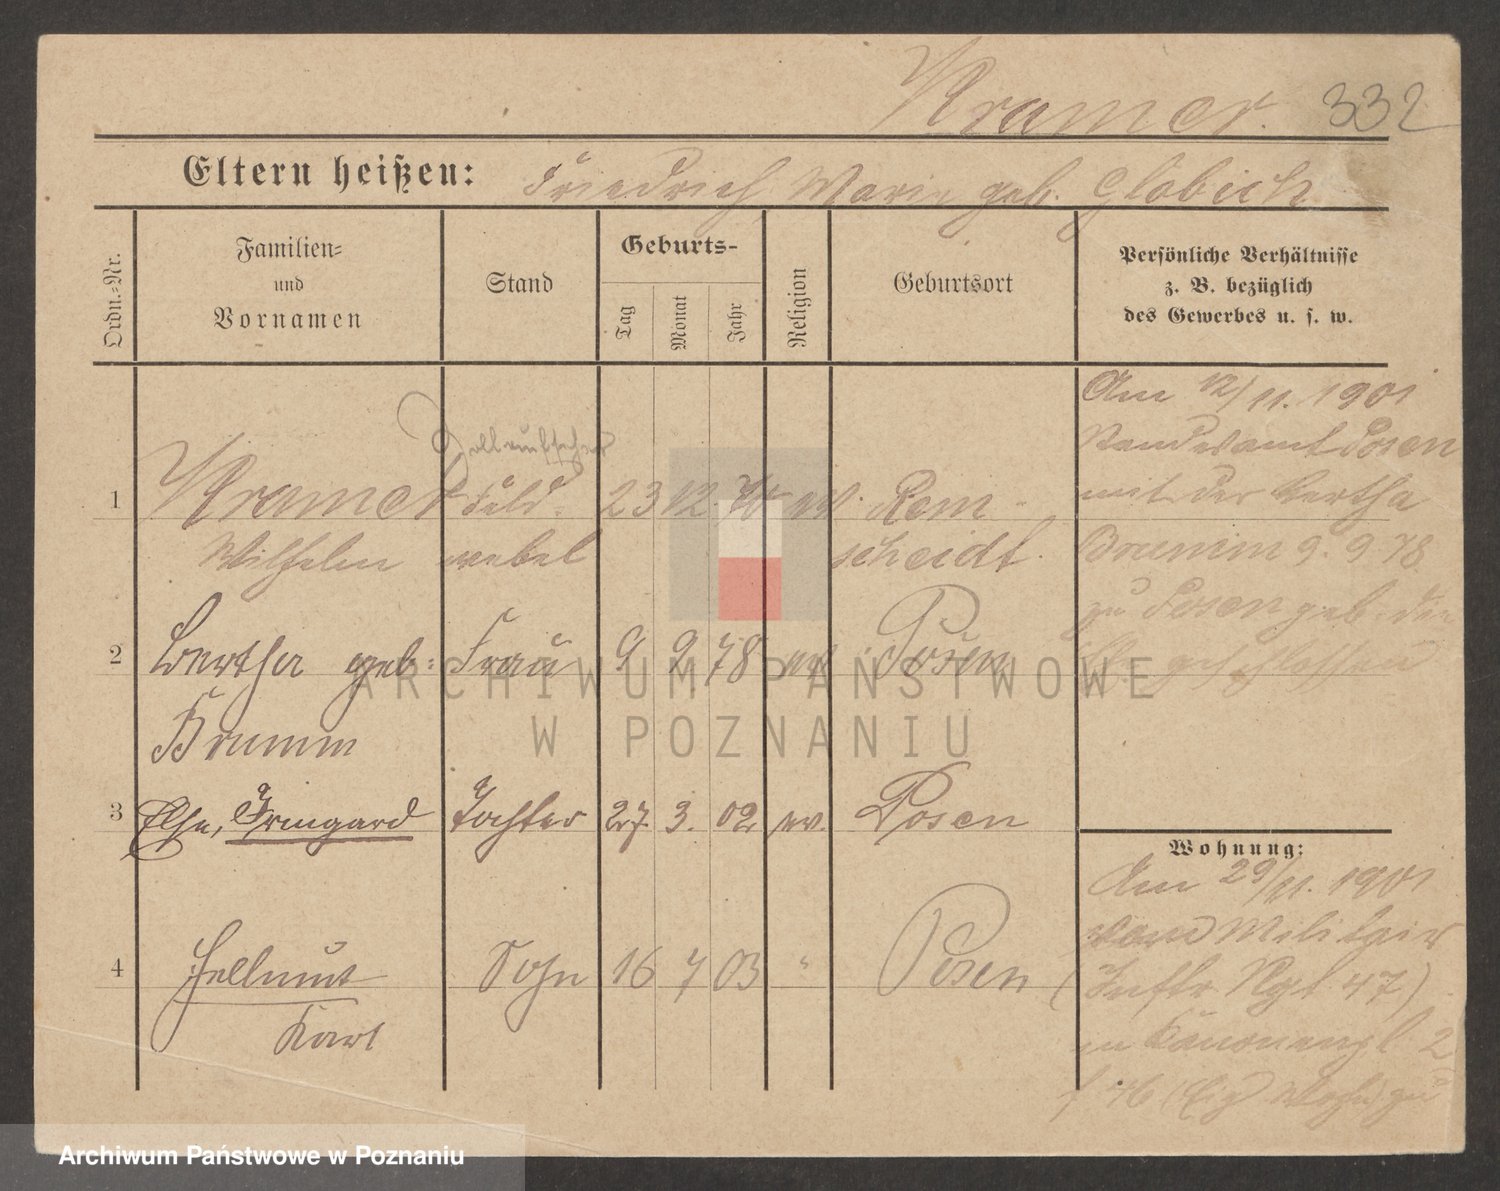 Kramer. 332
Eltern heißen: Friedrich Marie geb. Globich
Ordn.=Nr.
Familien=
und
Vornamen
Stand
Geburts-
Tag
Monat
Jahr
Religion
Geburtsort
Persönliche Verhältnisse
z. B. bezüglich
des Gewerbes u. s. w.
1 Kramer Feld- 23 12 ev. Rem-
Wilhelm webel scheidt.
2 Bertha geb: Frau 9 9 78 ev Posen
Brumm
3 Else, Irmgard Tochter 27 3. 02 ev. Posen
4 Hellmut Sohn 16 7 03 " Posen
Karl
Am 12/11. 1901
Standesamt Posen
mit der Bertha
Brumm 9. 9 78
zu Posen geb. die
Wohnung:
Am 29/11. 1901
vom Militair
(Inftr. Rgt. 47)
in Kanonenpl. 2
zu
ARCHIWUM PAŃSTWOWE
W POZNANIU
Archiwum Państwowe w Poznaniu